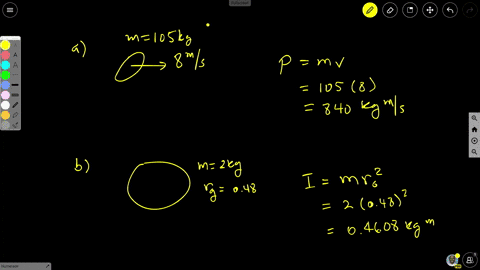 a)
m = 105 kg
8 m/s
P = mv
= 105 (8)
= 840 kg m/s
b)
m = 2 kg
rg = 0.48
I = m rG²
= 2 (0.48)²
= 0.4608 kg m